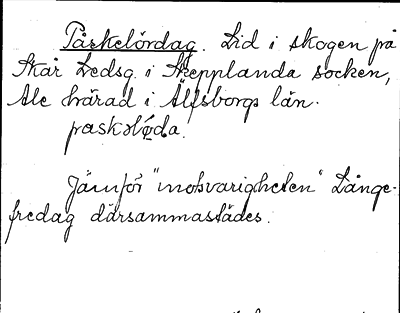 Påskelördag. Lid i skogen på
Skår Ledsg. i Skepplanda socken,
Ale härad i Älfsborgs län.
Jämför "motsvarigheten" Långe-
fredag därsammastädes.